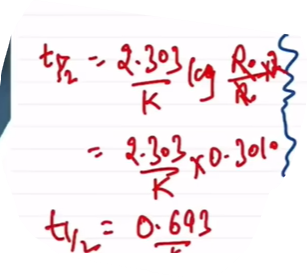 t½ = 2.303/K log R₀/R₀ ×2
= 2.303/K × 0.3010
t1/2 = 0.693/K